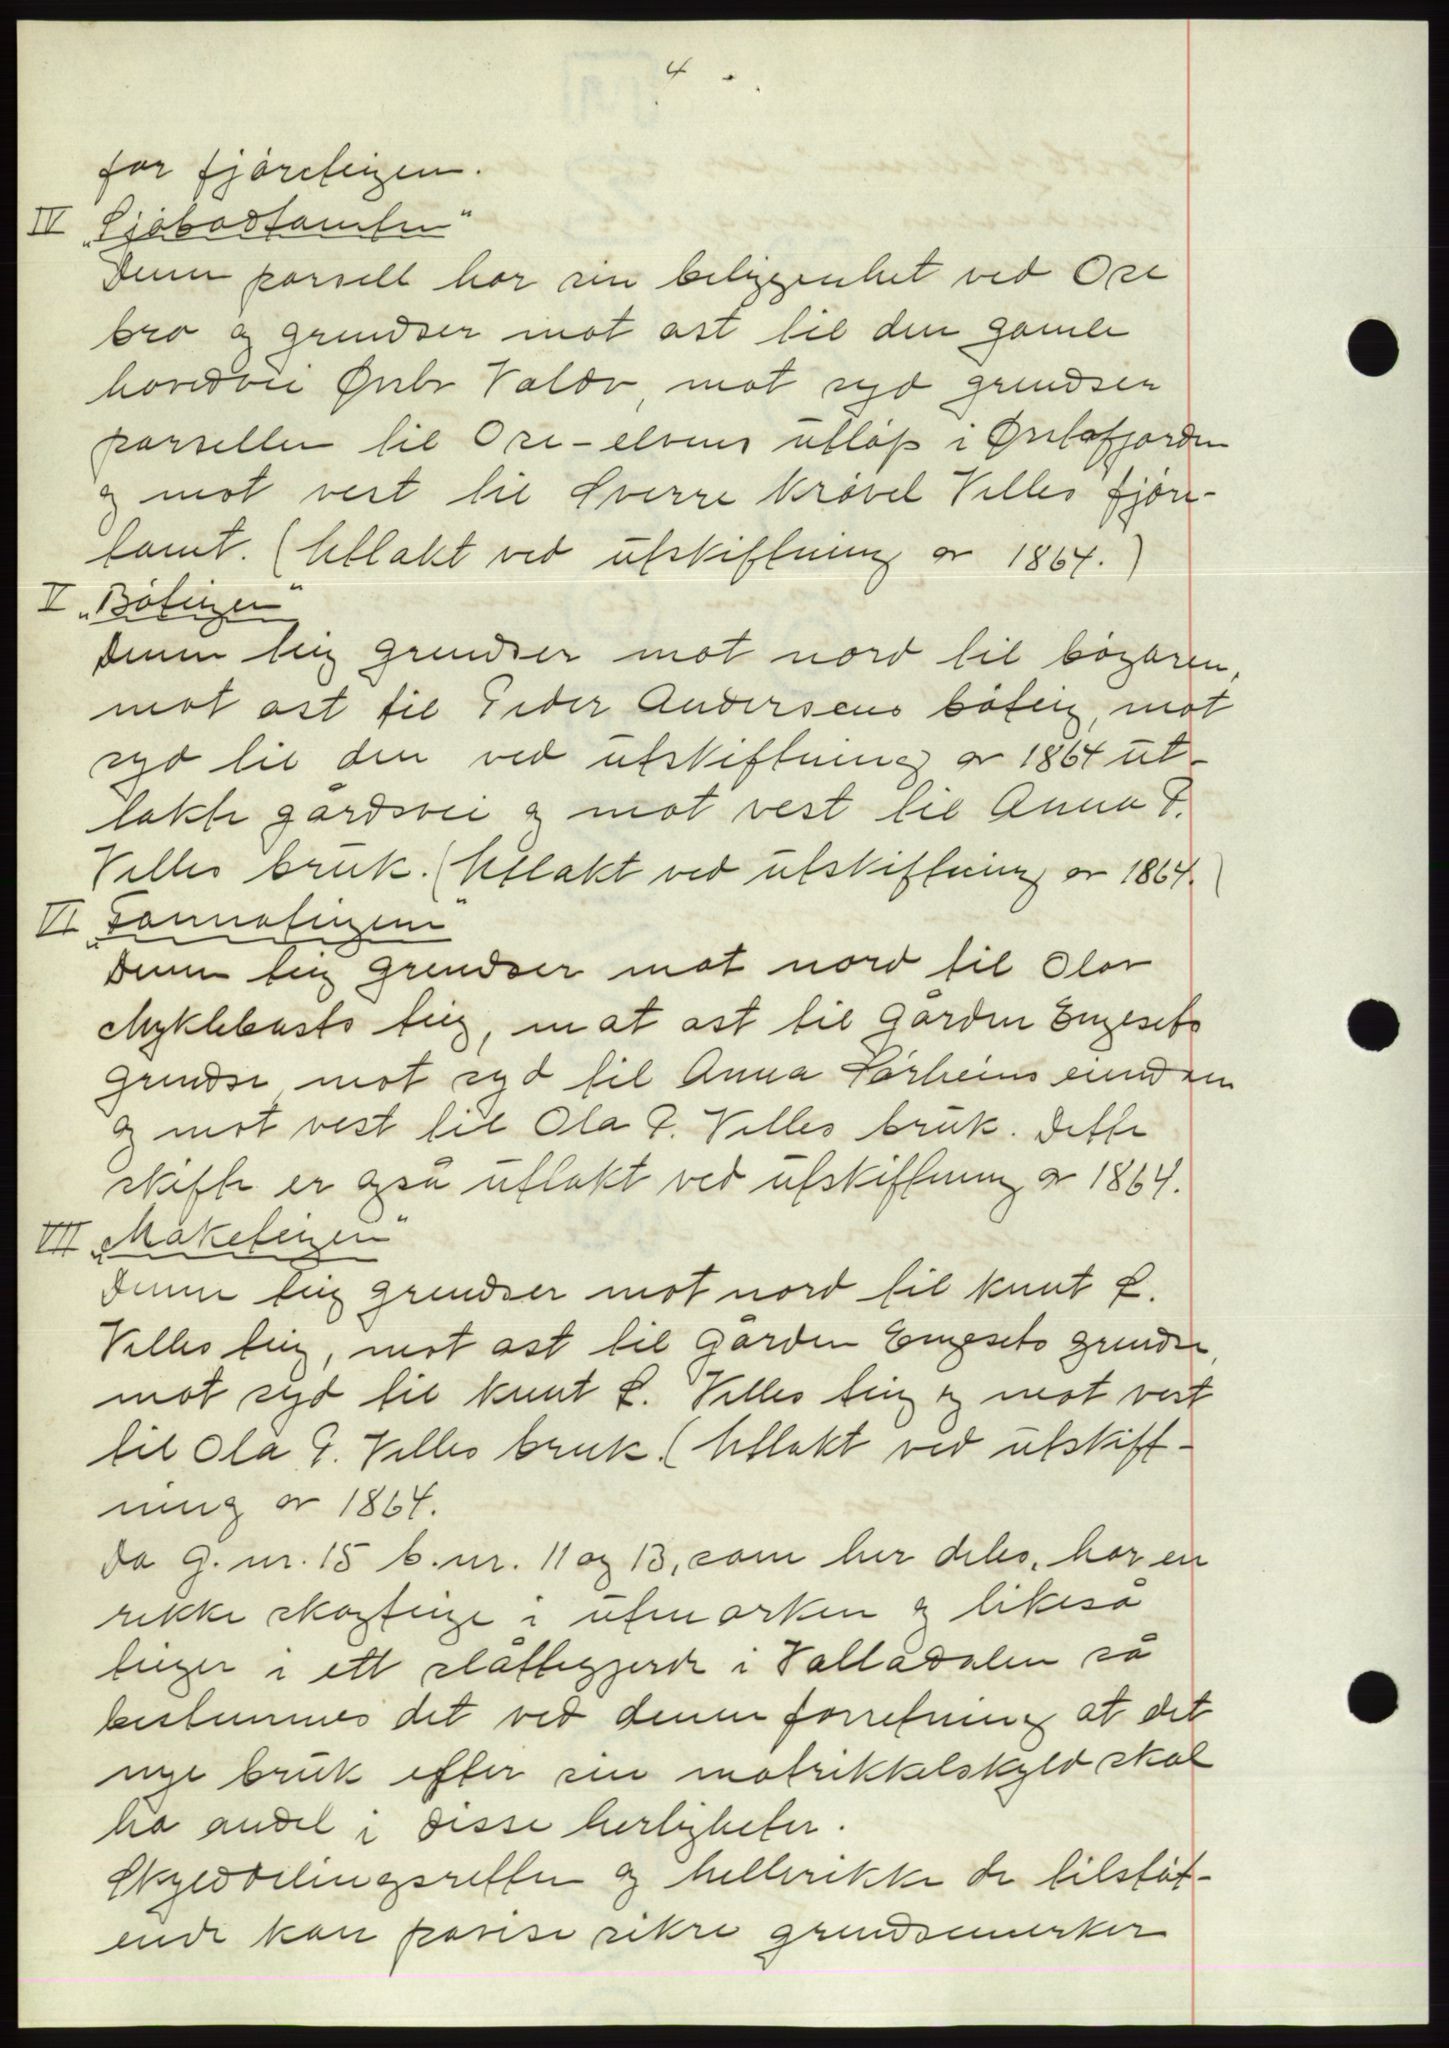 4
for fjøreteigen.
IV „Sjøbodtomten"
Denne parsell har sin beliggenhet ved Ose
bro og grendser mot øst til den gamle
hovedvei Ørsta Volda, mot syd grendser
parsellen til Ose-elvens utløp i Ørstafjorden
og mot vest til Sverre Krøvel Velles fjøre-
tomt. (Utlakt ved utskiftning av 1864.)
V „Bøteigen"
Denne teig grendser mot nord til bøgaren,
mot øst til Peder Andersens bøteig, mot
syd til den ved utskiftning av 1864 ut-
lakte gårdsvei og mot vest til Anna P.
Velles bruk. (Utlakt ved utskiftning av 1864.)
VI „Tonnateigene"
Denne teig grendser mot nord til Olav
Myklebusts teig, mot øst til gården Engesets
grendse, mot syd til Anna Sørheims eiendom
og mot vest til Ola P. Velles bruk. Dette
skifte er også utlakt ved utskiftning av 1864.
VII „Maketeigen"
Denne teig grendser mot nord til Knut L.
Velles teig, mot øst til gården Engesets grendse,
mot syd til Knut L. Velles teig og mot vest
til Ola P. Velles bruk. (Utlakt ved utskift-
ning av 1864.
Da g.nr. 15 b.nr. 11 og 13, som her deles, har en
rekke skogteige i utmarken og likeså
teiger i ett slåttegjerde i Vatladalen så
bestemmes det ved denne forretning at det
nye bruk efter sin matrikkelskyld skal
ha andel i disse herligheter.
Skylddelingsretten og heller ikke de tilstøt-
ende kan påvise sikre grendsemerker